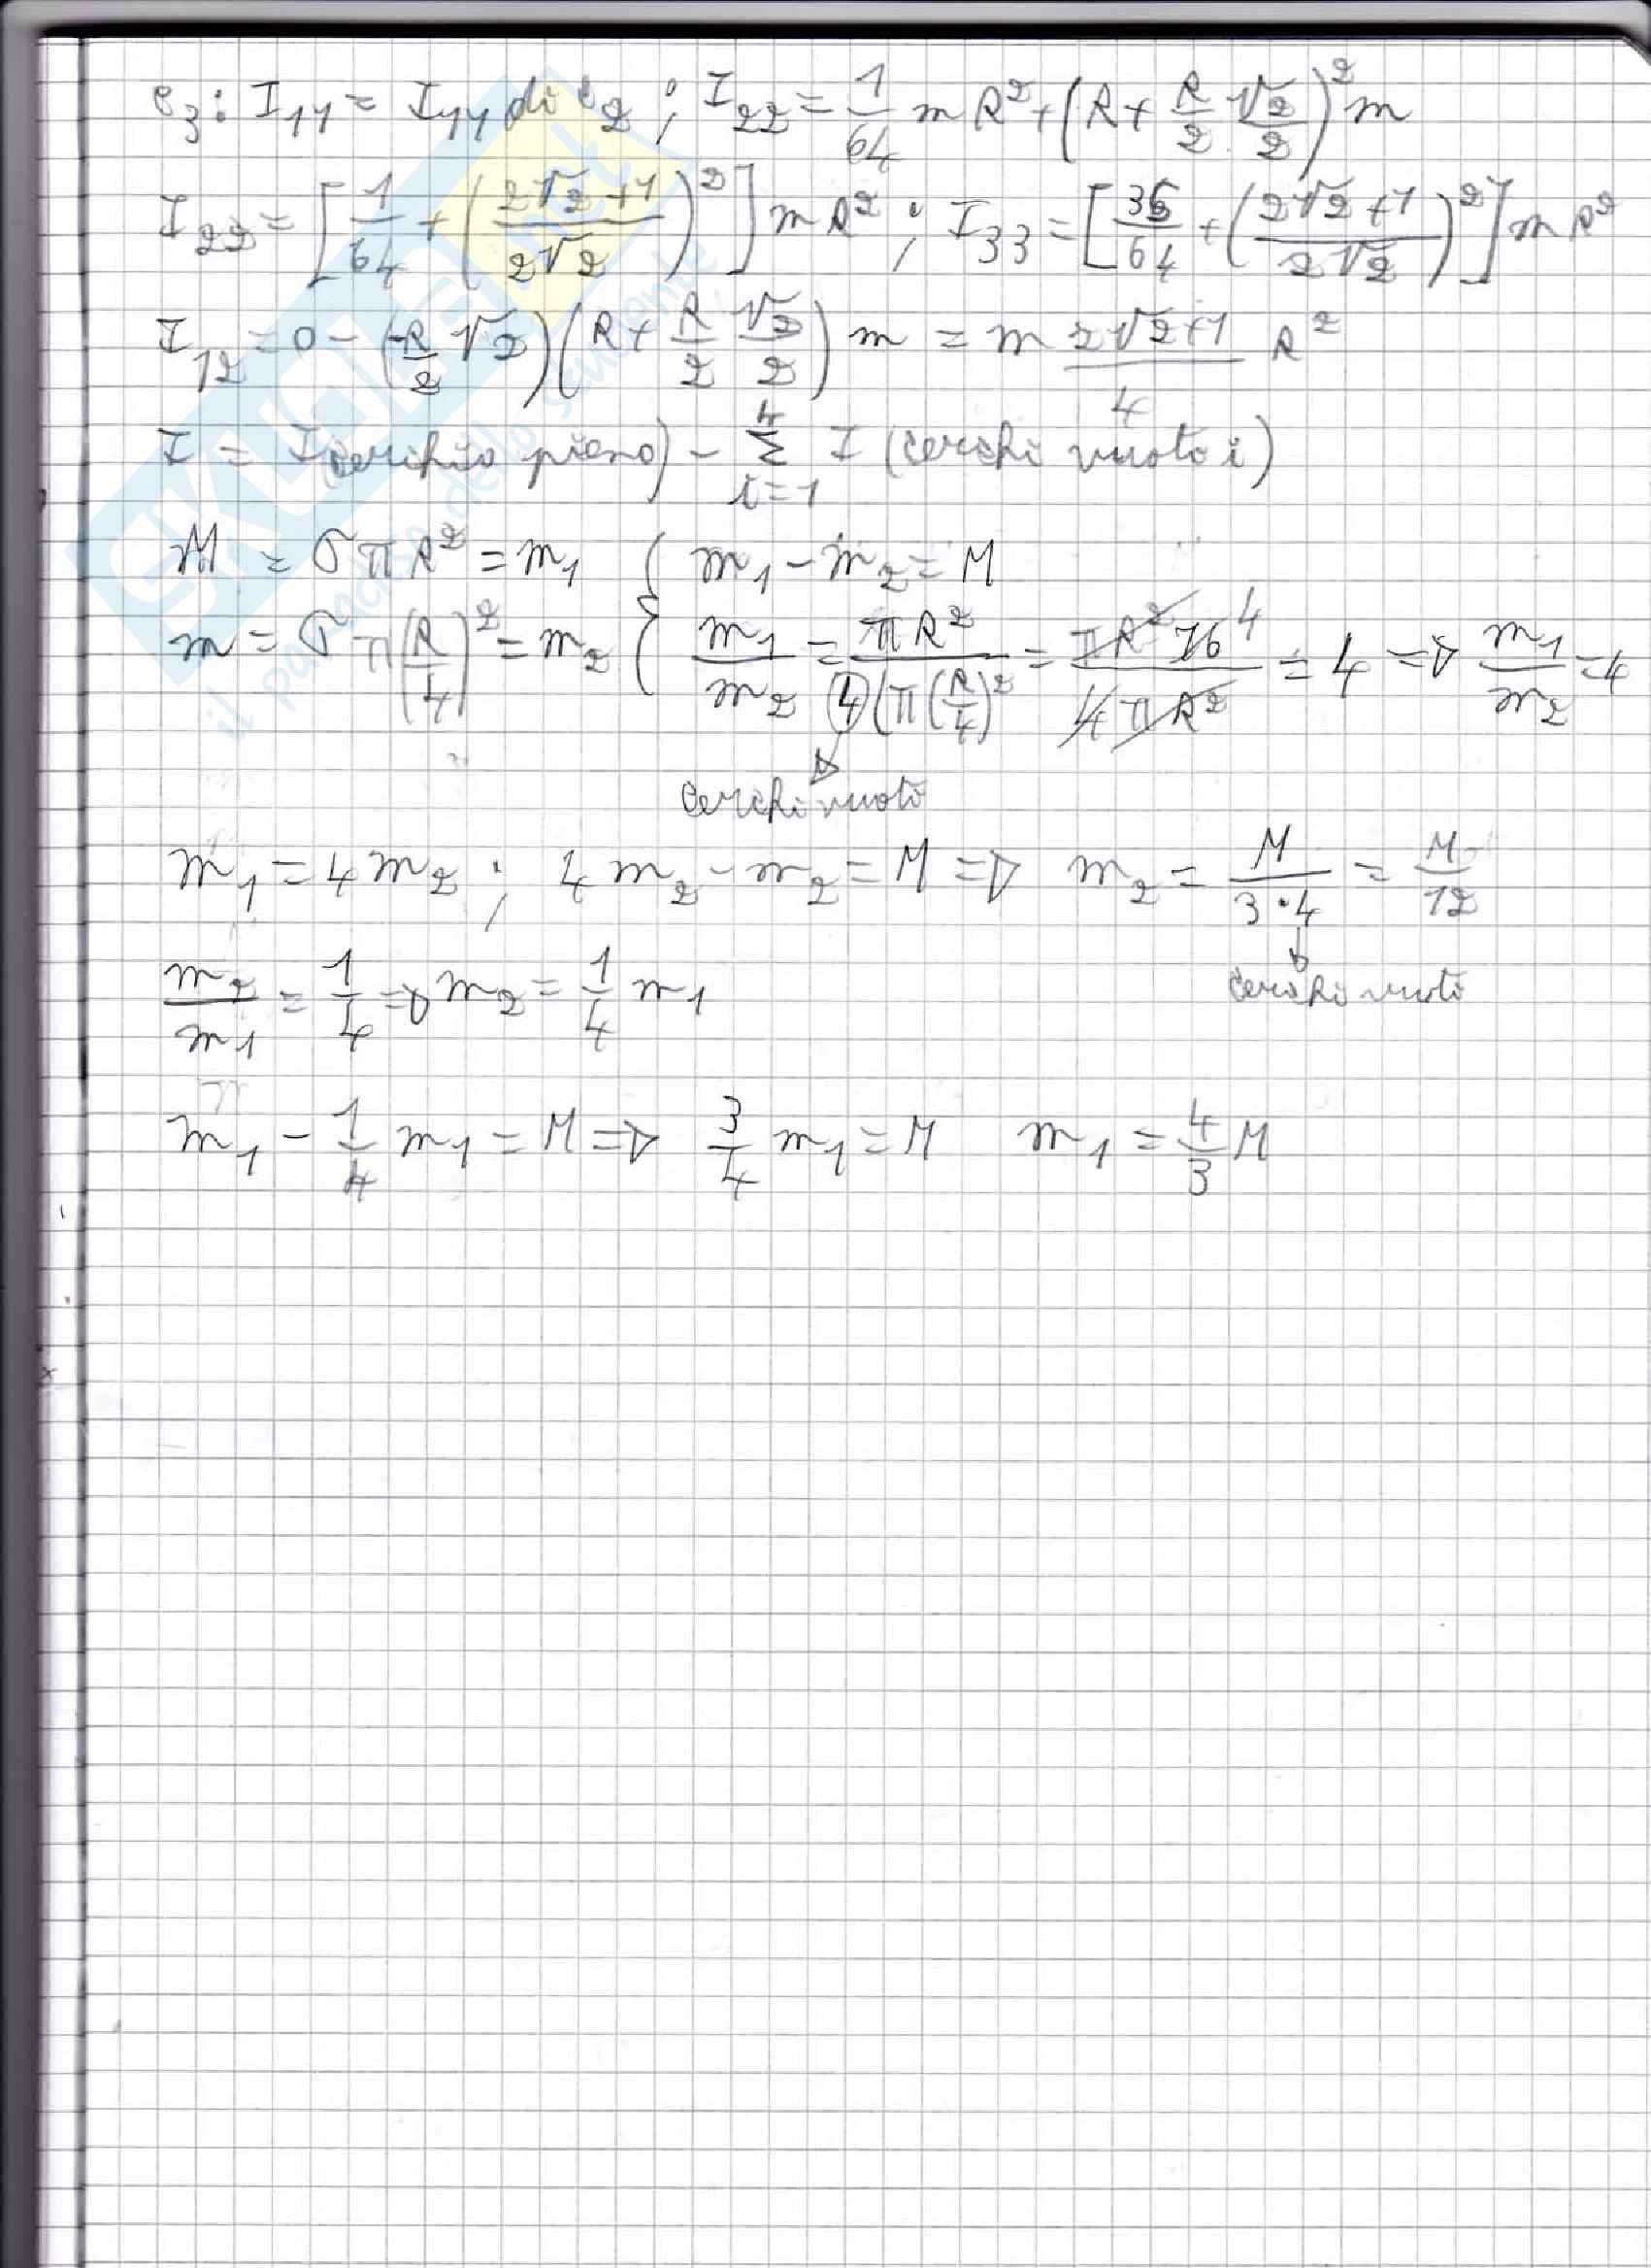 c₃: I₁₁ = I₁₁ di c₂ ; I₂₂ = 1/64 m R² + (R + R/2 √2/2)² m
I₂₂ = [1/64 + ((2√2+1)/(2√2))²] m R² ; I₃₃ = [/64 + ((2√2+1)/(2√2))²] m R²
I₁₂ = 0 - (-R/2 √2)(R + R/2 √2/2) m = m (2√2+1)/4 R²
I = I(cerchio pieno) - Σ_{i=1}^{4} I (cerchi vuoto i)
M = σπR² = m₁ { m₁ - m₂ = M
m = σπ(R/4)² = m₂ { m₁/m₂ = πR²/(4(π(R/4)²) = πR² 16 4/(4πR²) = 4 => m₁/m₂ = 4
cerchi vuoti
m₁ = 4m₂ ; 4m₂ - m₂ = M => m₂ = M/(3·4) = M/12
cerchi vuoti
m₂/m₁ = 1/4 => m₂ = 1/4 m₁
m₁ - 1/4 m₁ = M => 3/4 m₁ = M m₁ = 4/3 M
SKUOLA.net
il paradiso dello studente